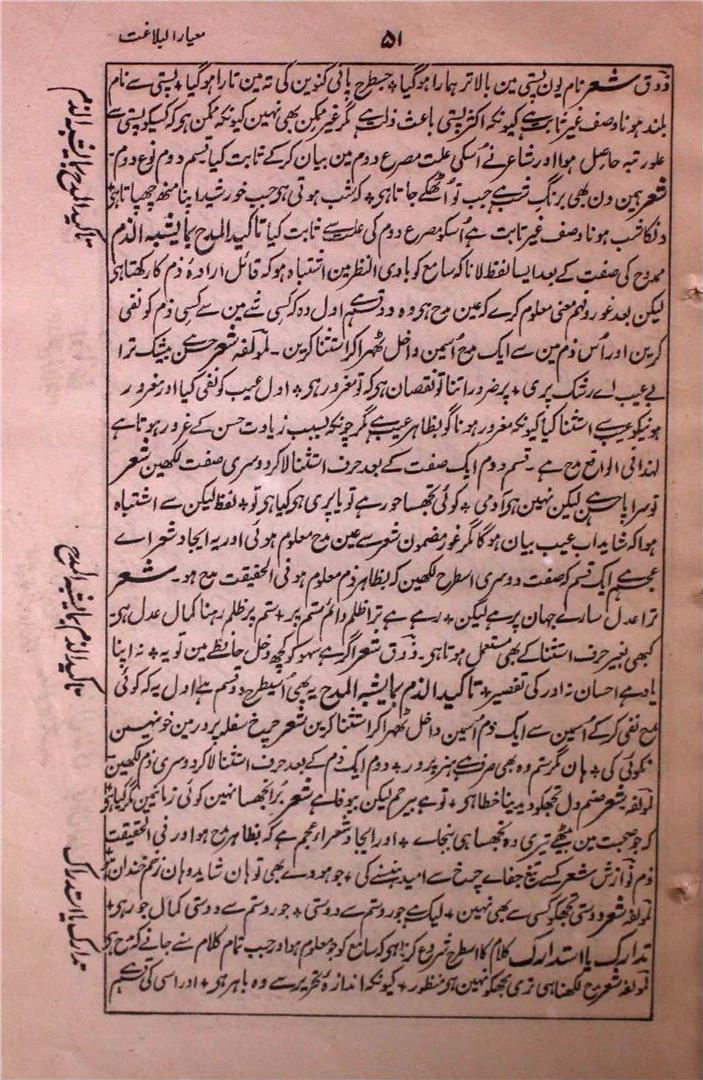 ۵۱
معیار البلاغت
ذوق شعر نام یون پستی مین بالاتر ہمارا ہوگیا + جسطرح پانی کنوین کی تہ مین تارا ہوگیا + پستی سے نام
بلند ہونا وصف غیر ثابت ہے کیونکہ اکثر پستی باعث ذلت ہے مگر غیر ممکن بھی نہین کیونکہ ممکن ہی کہ کسیکو پستی سے
علو رتبہ حاصل ہوا اور شاعر نے اُسکی علت مصرع دوم مین بیان کرکے ثابت کیا قسم دوم نوع دوم -
شعر ہمین دن بھی برنگ شب ہے جب تو اُٹھکے جاتا ہی + کہ شب ہوتی ہی جب خورشید اپنا منھ چھپاتا ہی +
دنکا شب ہونا وصف غیر ثابت ہے اُسکو مصرع دوم کی علت سے ثابت کیا تاکید المدح بمایشبہ الذم
ممدوح کی صفت کے بعد ایسا لفظ لانا کہ سامع کو بادی النظر مین اشتباہ ہو کہ قائل ارادہ ذم کا رکھتا ہی
لیکن بعد غور و فہم معنی معلوم کرے کہ عین مدح ہی وہ دو قسم ہے اول وہ کہ کسی شے مین سے کسی ذم کو نفی
کرین اور اُس ذم مین سے ایک مدح اُسمین داخل ٹھہرا کر استثنا کرین - لمؤلفہ شعر حسن بیشک ترا
بے عیب اے رشک پری + پر ضرور اتنا تو نقصان ہی کہ تو مغرور ہی + اول عیب کو نفی کیا اور مغرور
ہونیکو عیب سے استثنا کیا کیونکہ مغرور ہونا گو بظاہر عیب ہے مگر چونکہ بسبب زیادت حسن کے غرور ہوتا ہے
لہذا فی الواقع مدح ہے - قسم دوم ایک صفت کے بعد حرف استثنا لاکر دوسری صفت لکھین شعر
تو سراپا حسن لیکن نہین ہی آدمی + کوئی تجھسا حور ہے تو یا پری ہی کیا ہی تو + لفظ لیکن سے اشتباہ
ہوا کہ شاید اب عیب بیان ہوگا مگر غور مضمون شعر سے عین مدح معلوم ہوئی اور یہ ایجاد شعراے
عجم ہے ایک قسم کہ صفت دوسری اسطرح لکھین کہ بظاہر ذم معلوم ہو فی الحقیقت مدح ہو - شعر
ترا عدل سارے جہان پر ہے لیکن + رہے ہے ترا ظلم دائم ستم پر + ستم پر ظلم رہنا کمال عدل ہی
کبھی بغیر حرف استثنا کے بھی مستعمل ہوتا ہی - ذوق شعر اگر ہے سہو کو کچھ دخل حافظے مین تو یہ + نہ اپنا
یاد ہے احسان نہ اور کی تقصیر + تاکید الذم بمایشبہ المدح یہ بھی اُسیطرح دو قسم ہے اول یہ کہ کوئی
مدح نفی کرکے اُسمین سے ایک ذم اُسمین داخل ٹھہرا کر استثنا کرین شعر چرخ سفلہ پرور مین خو نہین
نکوئی کی + ہان مگر ستم وہ بھی صرف ہے ہنر پرور + دوم ایک ذم کے بعد حرف استثنا لاکر دوسری ذم لکھین
لمؤلفہ شعر صنم دل تجھکو دینا خطا ہی + تو ہے بیرحم لیکن بیوفا ہے شعر بُرا تجھسا نہین کوئی زمانے مین مگر کیا ہی
کہ جو صحبت مین بیٹھے تیری وہ تجھسا ہی بنجاے + اور ایجاد شعراء عجم ہے کہ بظاہر مدح ہو اور فی الحقیقت
ذم نوازش شعر کسے تیغ جفاے چرخ سے امید ہنسنے کی + جو ہووے بھی تو ہان شاید وہان زخم خندان ہو
لمؤلفہ شعر دوستی تجھکو کسی سے بھی نہین + لیک ہے جور و ستم سے دوستی + جور و ستم سے دوستی کمال جور ہی +
تدارک یا استدراک کلام کا اسطرح شروع کرنا ہی کہ سامع کو ہجو معلوم ہو اور جب تمام کلام سنے جانے کہ مدح ہی
لمؤلفہ شعر مدح لکھنا ہی تری مجھکو نہین ہی منظور + کیونکہ اندازہ تحریر سے وہ باہر ہی + اور اسی کی قسم ہے
تاکید المدح بمایشبہ الذم
تاکید الذم بمایشبہ المدح
تدارک یا استدراک